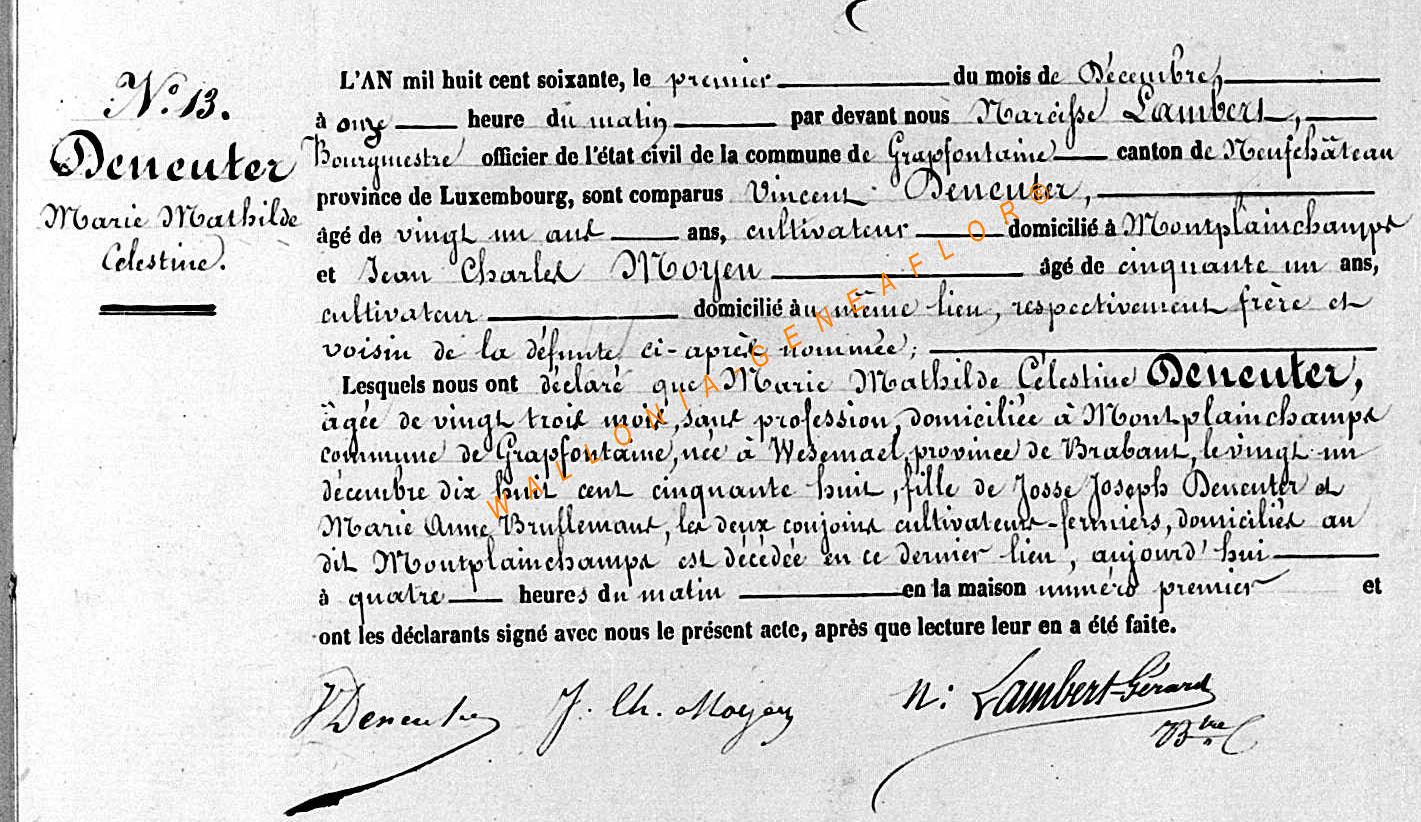 N.º 13.
Deneuter
Marie Mathilde
Célestine.
L'AN mil huit cent soixante, le premier du mois de Décembre,
à onze heure du matin par devant nous Narcisse Lambert,
Bourgmestre officier de l'état civil de la commune de Grapfontaine canton de Neufchâteau
province de Luxembourg, sont comparus Vincent Deneuter,
âgé de vingt un ans ans, cultivateur domicilié à Montplainchamps
et Jean Charles Moyen âgé de cinquante un ans,
cultivateur domicilié àu même lieu, respectivement frère et
voisin de la défunte ci-après nommée;
Lesquels nous ont déclaré que Marie Mathilde Célestine Deneuter,
âgée de vingt trois mois, sans profession, domiciliée à Montplainchamps
commune de Grapfontaine, née à Wesemael, province de Brabant, le vingt un
décembre dix huit cent cinquante huit, fille de Josse Joseph Deneuter et
Marie Anne Brufflemans, les deux conjoins cultivateurs-fermiers, domiciliés au
dit Montplainchamps est décédée en ce dernier lieu, aujourd'hui
à quatre heures du matin en la maison numéro premier et
ont les déclarants signé avec nous le présent acte, après que lecture leur en a été faite.
VDeneuter J. Ch. Moyen N: Lambert-Gérard
Btre
WALLONIA.GENEAFLORE